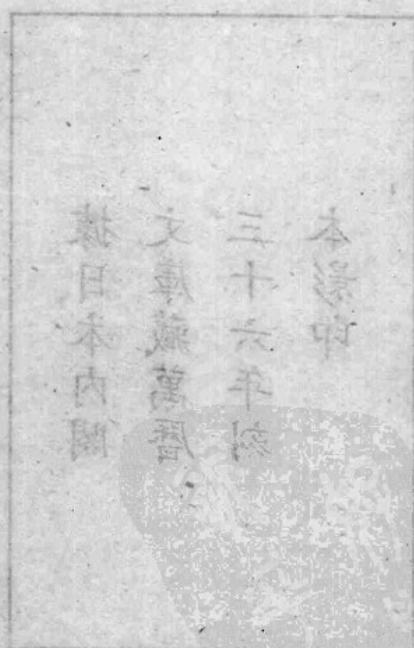 據日本内閣
文庫藏萬曆
三十六年刻
本影印